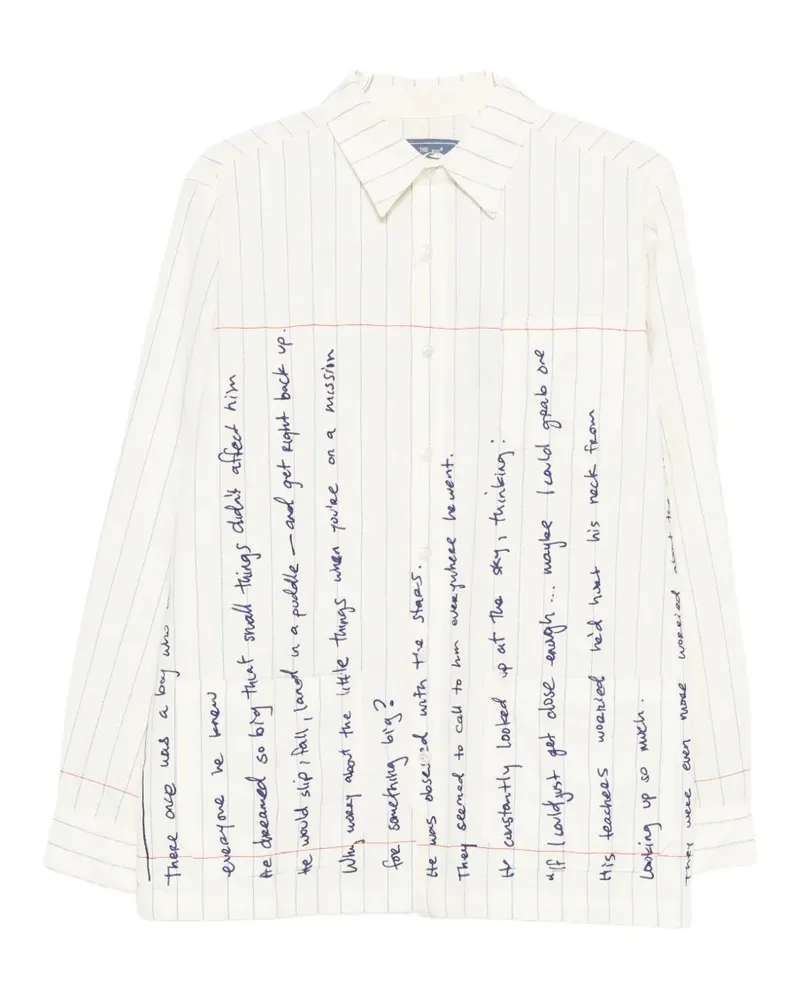 THE
There once was a boy who
everyone he knew
He dreamed so big that small things didn't affect him
He would slip, fall, land in a puddle — and get right back up.
Why worry about the little things when you're on a mission
for something big?
He was obsessed with the stars.
They seemed to call to him everywhere he went.
He constantly looked up at the sky, thinking:
"If I could just get close enough... maybe I could grab one
His teachers worried he'd hurt his neck from
Looking up so much.
They were even more worried about the